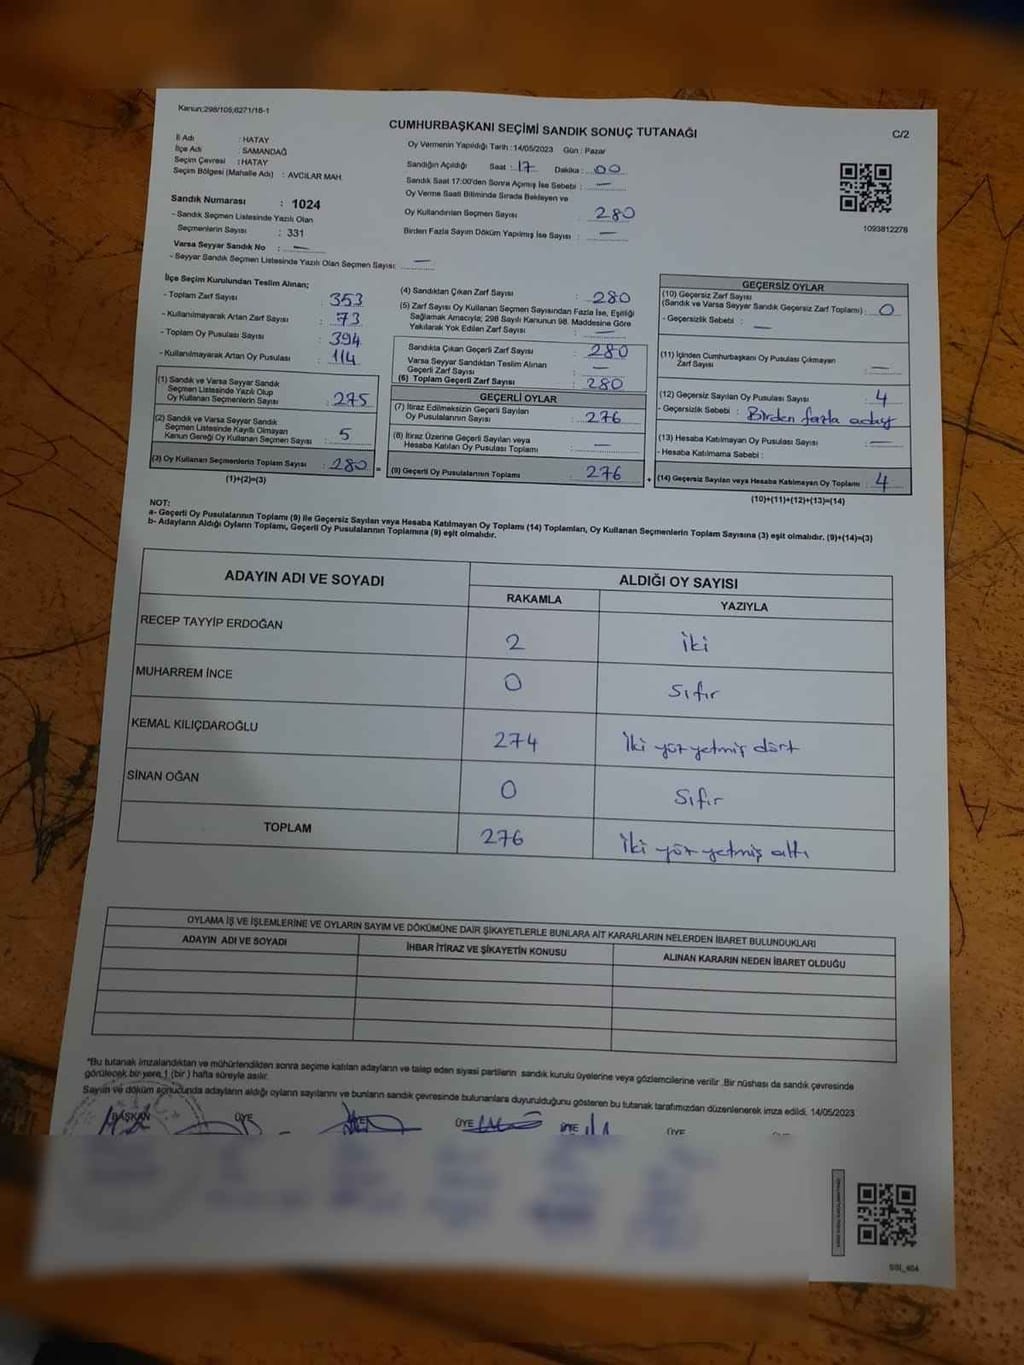 Kanun:298/105;6271/18-1
CUMHURBAŞKANI SEÇİMİ SANDIK SONUÇ TUTANAĞI
C/2
İl Adı : HATAY
İlçe Adı : SAMANDAĞ
Seçim Çevresi : HATAY
Seçim Bölgesi (Mahalle Adı) : AVCILAR MAH.
Sandık Numarası : 1024
- Sandık Seçmen Listesinde Yazılı Olan
Seçmenlerin Sayısı : 331
Varsa Seyyar Sandık No : —
- Seyyar Sandık Seçmen Listesinde Yazılı Olan Seçmen Sayısı: —
Oy Vermenin Yapıldığı Tarih : 14/05/2023 Gün : Pazar
Sandığın Açıldığı Saat : 17 Dakika : 00
Sandık Saat 17:00'den Sonra Açımış İse Sebebi : —
Oy Verme Saati Bitiminde Sırada Bekleyen ve
Oy Kullandırılan Seçmen Sayısı 280
Birden Fazla Sayım Döküm Yapılmış İse Sayısı : —
1093812278
İlçe Seçim Kurulundan Teslim Alınan;
- Toplam Zarf Sayısı : 353
- Kullanılmayarak Artan Zarf Sayısı : 73
- Toplam Oy Pusulası Sayısı : 394
- Kullanılmayarak Artan Oy Pusulası : 114
(1) Sandık ve Varsa Seyyar Sandık
Seçmen Listesinde Yazılı Olup
Oy Kullanan Seçmenlerin Sayısı : 275
(2) Sandık ve Varsa Seyyar Sandık
Seçmen Listesinde Kayıtlı Olmayan
Kanun Gereği Oy Kullanan Seçmen Sayısı : 5
(3) Oy Kullanan Seçmenlerin Toplam Sayısı : 280 =
(1)+(2)=(3)
(4) Sandıktan Çıkan Zarf Sayısı : 280
(5) Zarf Sayısı Oy Kullanan Seçmen Sayısından Fazla İse, Eşitliği
Sağlamak Amacıyla; 298 Sayılı Kanunun 98. Maddesine Göre
Yakılarak Yok Edilen Zarf Sayısı : —
Sandıkta Çıkan Geçerli Zarf Sayısı : 280
Varsa Seyyar Sandıktan Teslim Alınan
Geçerli Zarf Sayısı : —
(6) Toplam Geçerli Zarf Sayısı : 280
GEÇERLİ OYLAR
(7) İtiraz Edilmeksizin Geçerli Sayılan
Oy Pusulasının Sayısı : 276
(8) İtiraz Üzerine Geçerli Sayılan veya
Hesaba Katılan Oy Pusulası Toplamı : —
(9) Geçerli Oy Pusulalarının Toplamı : 276 +
GEÇERSİZ OYLAR
(10) Geçersiz Zarf Sayısı
(Sandık ve Varsa Seyyar Sandık Geçersiz Zarf Toplamı) : 0
- Geçersizlik Sebebi : —
(11) İçinden Cumhurbaşkanı Oy Pusulası Çıkmayan
Zarf Sayısı : —
(12) Geçersiz Sayılan Oy Pusulası Sayısı : 4
- Geçersizlik Sebebi : Birden fazla aday
(13) Hesaba Katılmayan Oy Pusulası Sayısı : —
- Hesaba Katılmama Sebebi :
(14) Geçersiz Sayılan veya Hesaba Katılmayan Oy Toplamı : 4
(10)+(11)+(12)+(13)=(14)
NOT:
a- Geçerli Oy Pusulalarının Toplamı (9) ile Geçersiz Sayılan veya Hesaba Katılmayan Oy Toplamı (14) Toplamları, Oy Kullanan Seçmenlerin Toplam Sayısına (3) eşit olmalıdır. (9)+(14)=(3)
b- Adayların Aldığı Oyların Toplamı, Geçerli Oy Pusulalarının Toplamına (9) eşit olmalıdır.
ADAYIN ADI VE SOYADI ALDIĞI OY SAYISI
RAKAMLA YAZIYLA
RECEP TAYYİP ERDOĞAN 2 iki
MUHARREM İNCE 0 Sıfır
KEMAL KILIÇDAROĞLU 274 İki yüz yetmiş dört
SİNAN OĞAN 0 Sıfır
TOPLAM 276 İki yüz yetmiş altı
OYLAMA İŞ VE İŞLEMLERİNE VE OYLARIN SAYIM VE DÖKÜMÜNE DAİR ŞİKAYETLERLE BUNLARA AİT KARARLARIN NELERDEN İBARET BULUNDUKLARI
ADAYIN ADI VE SOYADI İHBAR İTİRAZ VE ŞİKAYETİN KONUSU ALINAN KARARIN NEDEN İBARET OLDUĞU
*Bu tutanak imzalandıktan ve mühürlendikten sonra seçime katılan adayların ve talep eden siyasi partilerin sandık kurulu üyelerine veya gözlemcilerine verilir .Bir nüshası da sandık çevresinde
görülecek bir yere 1 (bir ) hafta süreyle asılır.
Sayım ve döküm sonucunda adayların aldığı oyların sayılarını ve bunların sandık çevresinde bulunanlara duyurulduğunu gösteren bu tutanak tarafımızdan düzenlenerek imza edildi. 14/05/2023
BAŞKAN ÜYE ÜYE ÜYE ÜYE